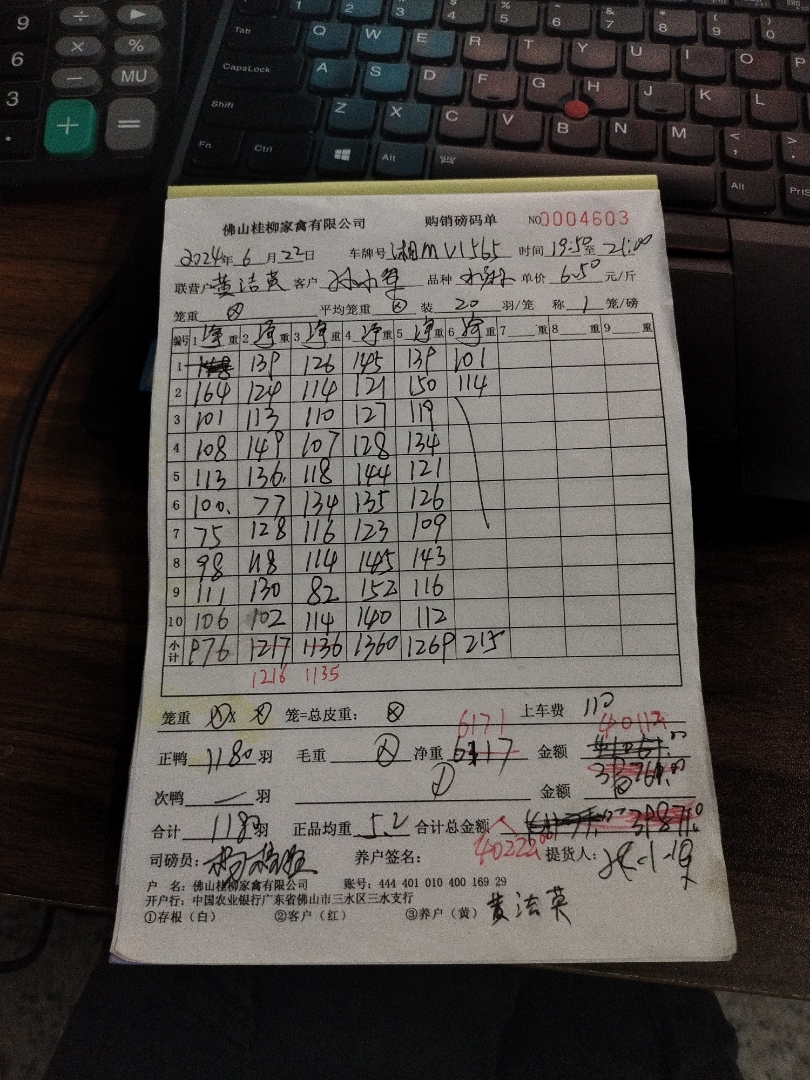 9 ÷ ▶
6 × % 
3 − MU
. + =
Tab Q W E R T Y U I O P
CapsLock A S D F G H J K L
Shift Z X C V B N M < >
Fn Ctrl Alt Alt PrtS
佛山桂柳家禽有限公司 购销磅码单 NO0004603
2024年6月22日 车牌号湘MV1565 时间19:50至21:00
联营户黄洁英 客户 品种 单价6.50元/斤
笼重⊗ 平均笼重⊗ 装20羽/笼 称1笼/磅
编号 1净重 2净重 3净重 4净重 5净重 6净重 7重 8重 9重
1 139 126 145 139 101
2 164 124 114 121 150 114
3 101 113 110 127 119
4 108 149 107 128 134
5 113 136 118 144 121
6 100 77 134 135 126
7 75 128 116 123 109
8 98 118 114 145 143
9 111 130 82 152 116
10 106 102 114 140 112
小计 976 1217 1136 1360 1269 215
1216 1135
笼重 × 笼=总皮重:⊗ 上车费 110
6171 40112
正鸭1180羽 毛重⊗ 净重 金额
次鸭—羽 金额
合计1180羽 正品均重5.2 合计总金额
司磅员: 养户签名: 40222 提货人:
户 名:佛山桂柳家禽有限公司 账号:444 401 010 400 169 29
开户行:中国农业银行广东省佛山市三水区三水支行
①存根(白) ②客户(红) ③养户(黄) 黄洁英